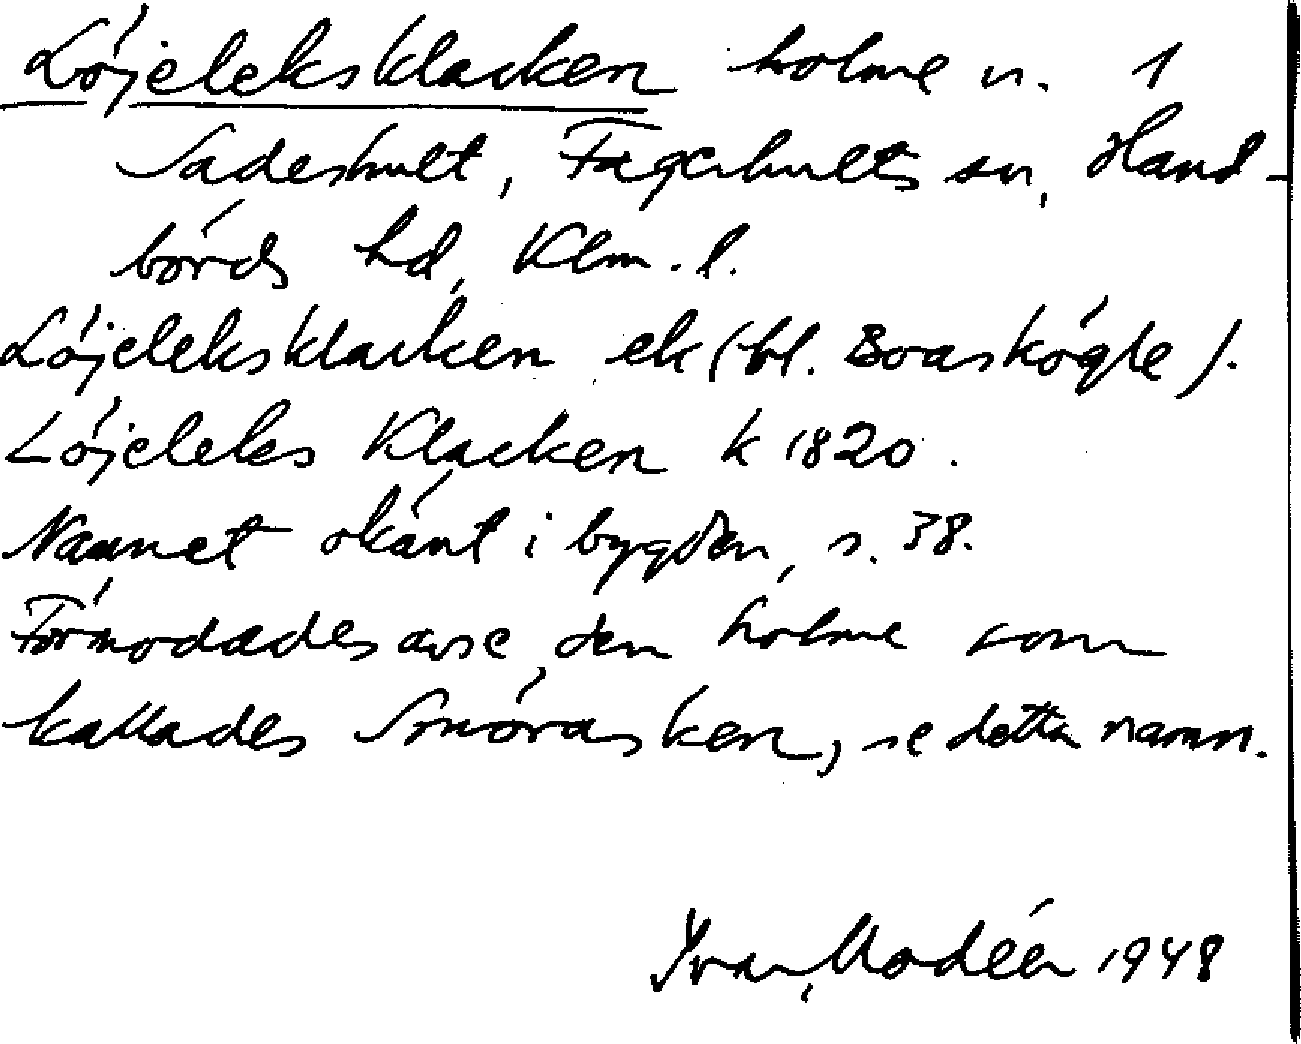 Löjeleksklacken holme n. 1
Sadeshult, Fagerhults sn, Hand-
börds hd, Klm. l.
Löjeleksklacken ek (bl. Boaskögle).
Löjeleks Klacken k 1820.
Namnet okänt i bygden, s. 38.
Förmodades avse den holme som
kallades Smörasken, se detta namn.
Ivar Modéer 1948